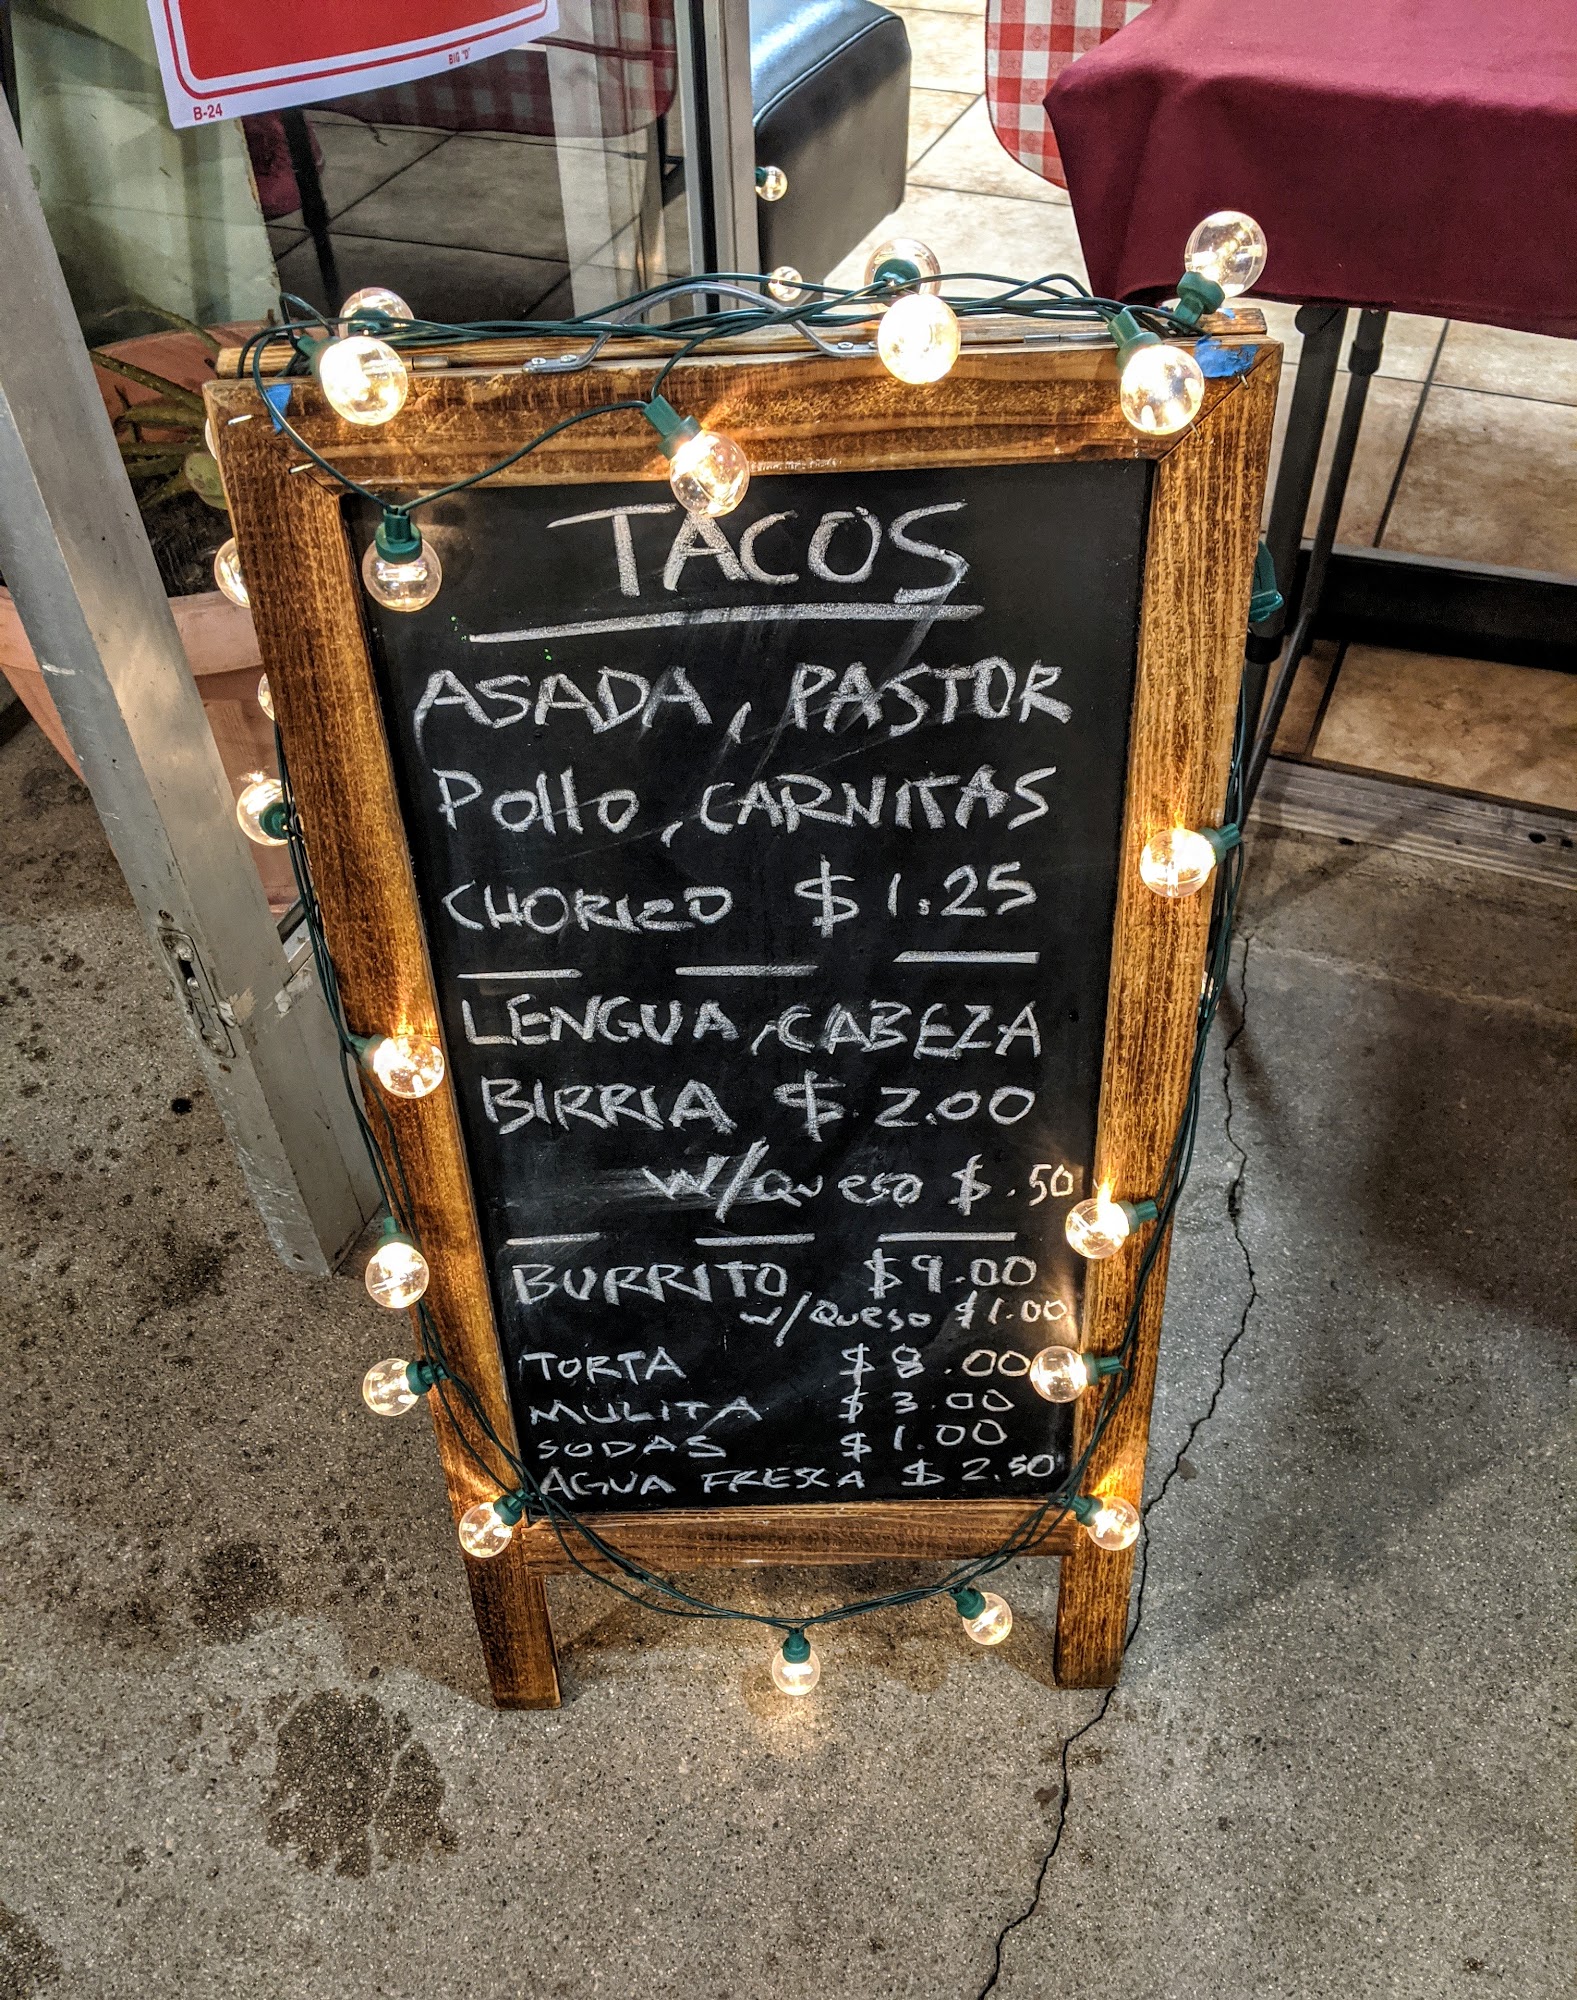 BIG "D"
B-24
TACOS
ASADA, PASTOR
Pollo, CARNITAS
CHORIZO $1.25
LENGUA, CABEZA
BIRRIA $2.00
w/QUESO $.50
BURRITO $9.00
w/QUESO $1.00
TORTA $8.00
MULITA $3.00
SODAS $1.00
AGUA FRESCA $2.50